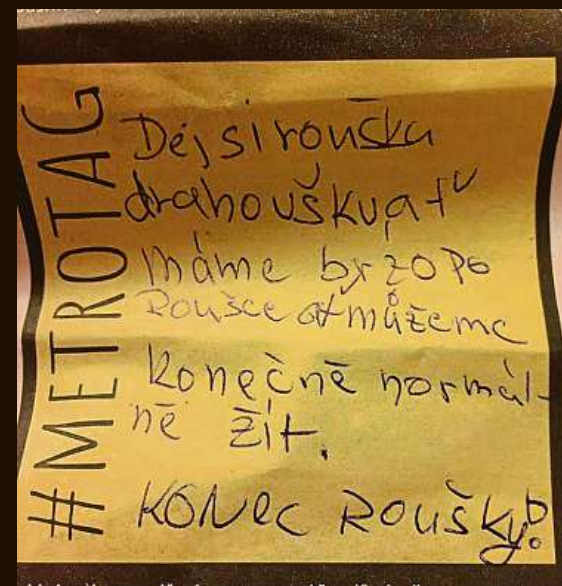 #METROTAG
Dej si roušku
drahoušku, ať
máme brzo po
Roušce ať můžeme
konečně normál-
ně žít.
KONEC ROUŠKY!